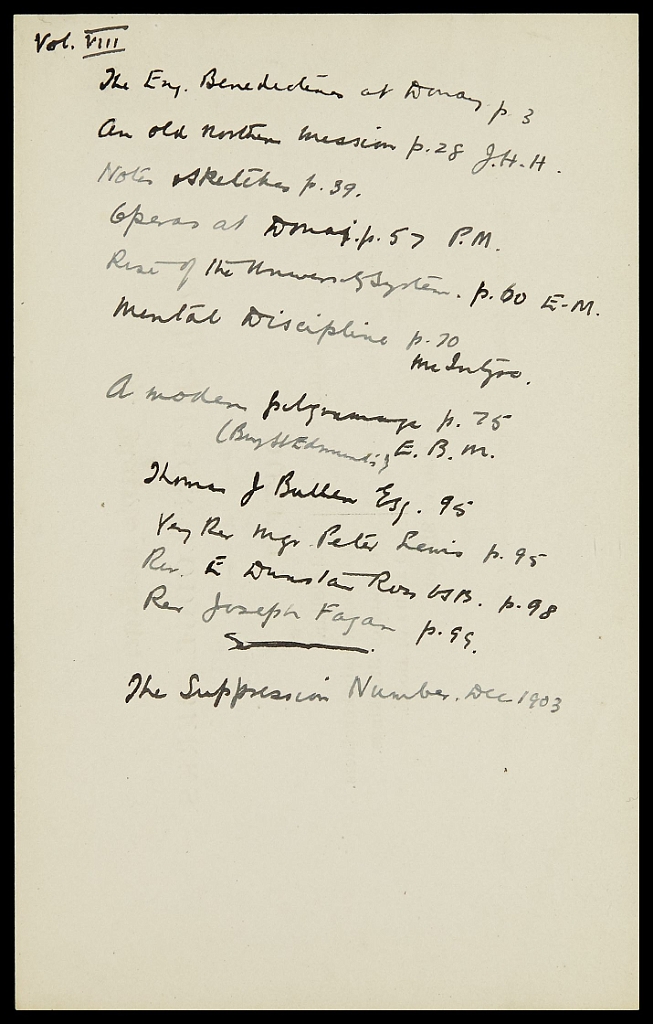 Vol. VIII
The Eng. Benedictines at Douay p. 3
An old northern mission p. 28 J.H.H.
Notes & Sketches p. 39.
Operas at Douai. p. 57 P.M.
Rise of the University System. p. 60 E-M.
Mental Discipline p. 70
McIntyre.
A modern pilgrimage p. 75
(Bury St Edmunds) E. B. M.
Thomas J Bullen Esq. 95
Very Rev Mgr. Peter Lewis p. 95
Rev. E Dunstan Ross OSB. p. 98
Rev Joseph Fagan p. 99.
The Suppression Number. Dec 1903